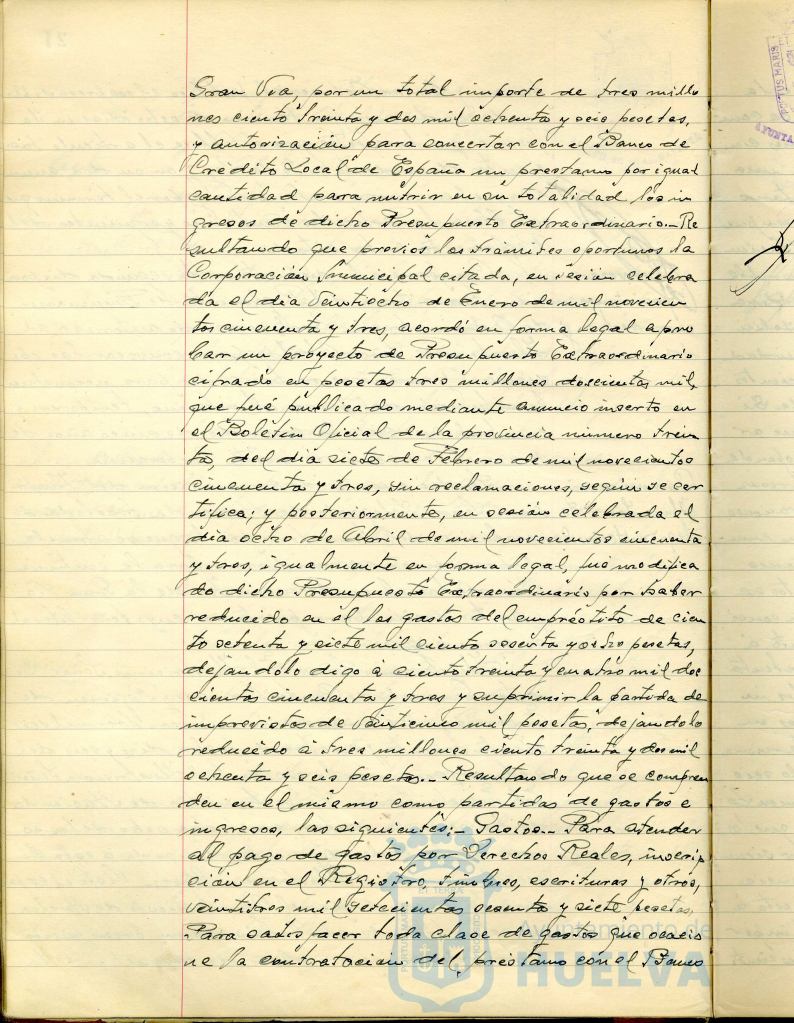 Gran Via, por un total importe de tres millo
nes ciento treinta y dos mil ochenta y seis pesetas,
y autorización para concertar con el Banco de
Crédito Local de España un prestamo por igual
cantidad para nutrir en su totalidad los in
gresos de dicho Presupuesto Extraordinario.- Re
sultando que previos los trámites oportunos la
Corporación municipal citada, en sesión celebra
da el dia Veintiocho de Enero de mil novecien
tos cincuenta y tres, acordó en forma legal apro
bar un proyecto de Presupuesto Extraordinario
cifrado en pesetas tres millones doscientas mil,
que fué publicado mediante anuncio inserto en
el Boletin Oficial de la provincia número trein
ta, del dia siete de Febrero de mil novecientos
cincuenta y tres, sin reclamaciones, según se cer
tifica; y posteriormente, en sesión celebrada el
dia ocho de Abril de mil novecientos cincuenta
y tres, igualmente en forma legal, fué modifica
do dicho Presupuesto Extraordinario por haber
reducido en él los gastos del empréstito de cien
to setenta y siete mil ciento sesenta y ocho pesetas,
dejandolo digo á ciento treinta y cuatro mil dos
cientas cincuenta y tres y suprimir la partida de
imprevistos de Veinticinco mil pesetas, dejandolo
reducido á tres millones ciento treinta y dos mil
ochenta y seis pesetas.- Resultando que se compren
den en el mismo como partidas de gastos e
ingresos, las siguientes:- Gastos.- Para atender
al pago de gastos por Derechos Reales, inscrip
ción en el Registro, timbres, escrituras y otros,
veintitres mil setecientas sesenta y siete pesetas.
Para satisfacer toda clase de gastos que ocasio
ne la contratación del préstamo con el Banco
Ayuntamiento de
HUELVA